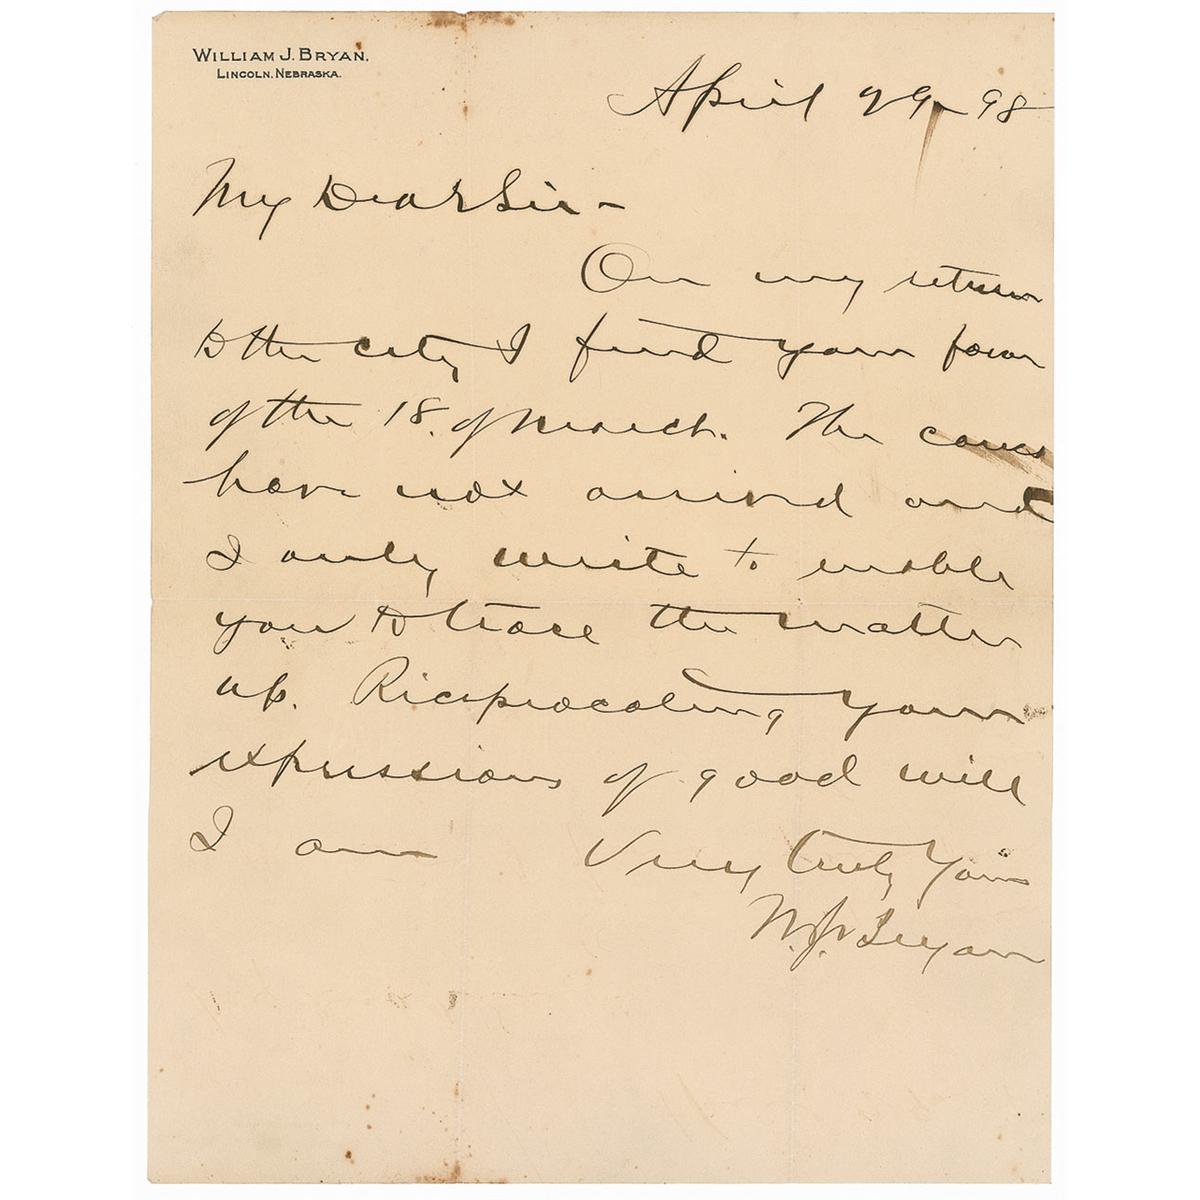 WILLIAM J. BRYAN,
LINCOLN, NEBRASKA.
April 29 - 98
My Dear Sir -
On my return
to the city I find your favor
of the 18. of March. The canes
have not arrived and
I only write to enable
you to trace the matter
up. Reciprocating your
expressions of good will
I am Very truly yours
W. J. Bryan